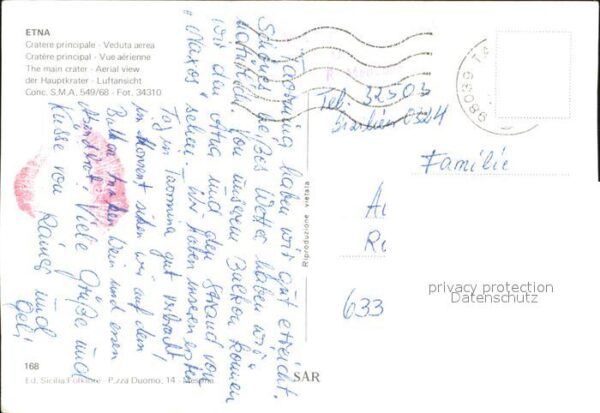 ETNA
Cratere principale - Veduta aerea
Cratère principal - Vue aérienne
The main crater - Aerial view
der Hauptkrater - Luftansicht
Conc. S.M.A. 549/68 - Fot. 34310
Taormina haben wir gut erreicht.
Schönes heißes Wetter haben wir
natürlich. Von unserem Balkon können
wir den Ätna und den Strand von
"Naxos" sehen. Wir haben unseren ersten
Tag in Taormina gut verbracht
im Moment sitzen wir auf dem
Balkon trinken Wein und essen
Viele Grüße und
Küsse von Rainer und
Gabi
168
Ed. Sicilia Folklore - P.zza Duomo, 14 - Messina
SAR
Riproduzione vietata
98039 TA
Tel. 32503
0324
Familie
A
R
633
privacy protection
Datenschutz